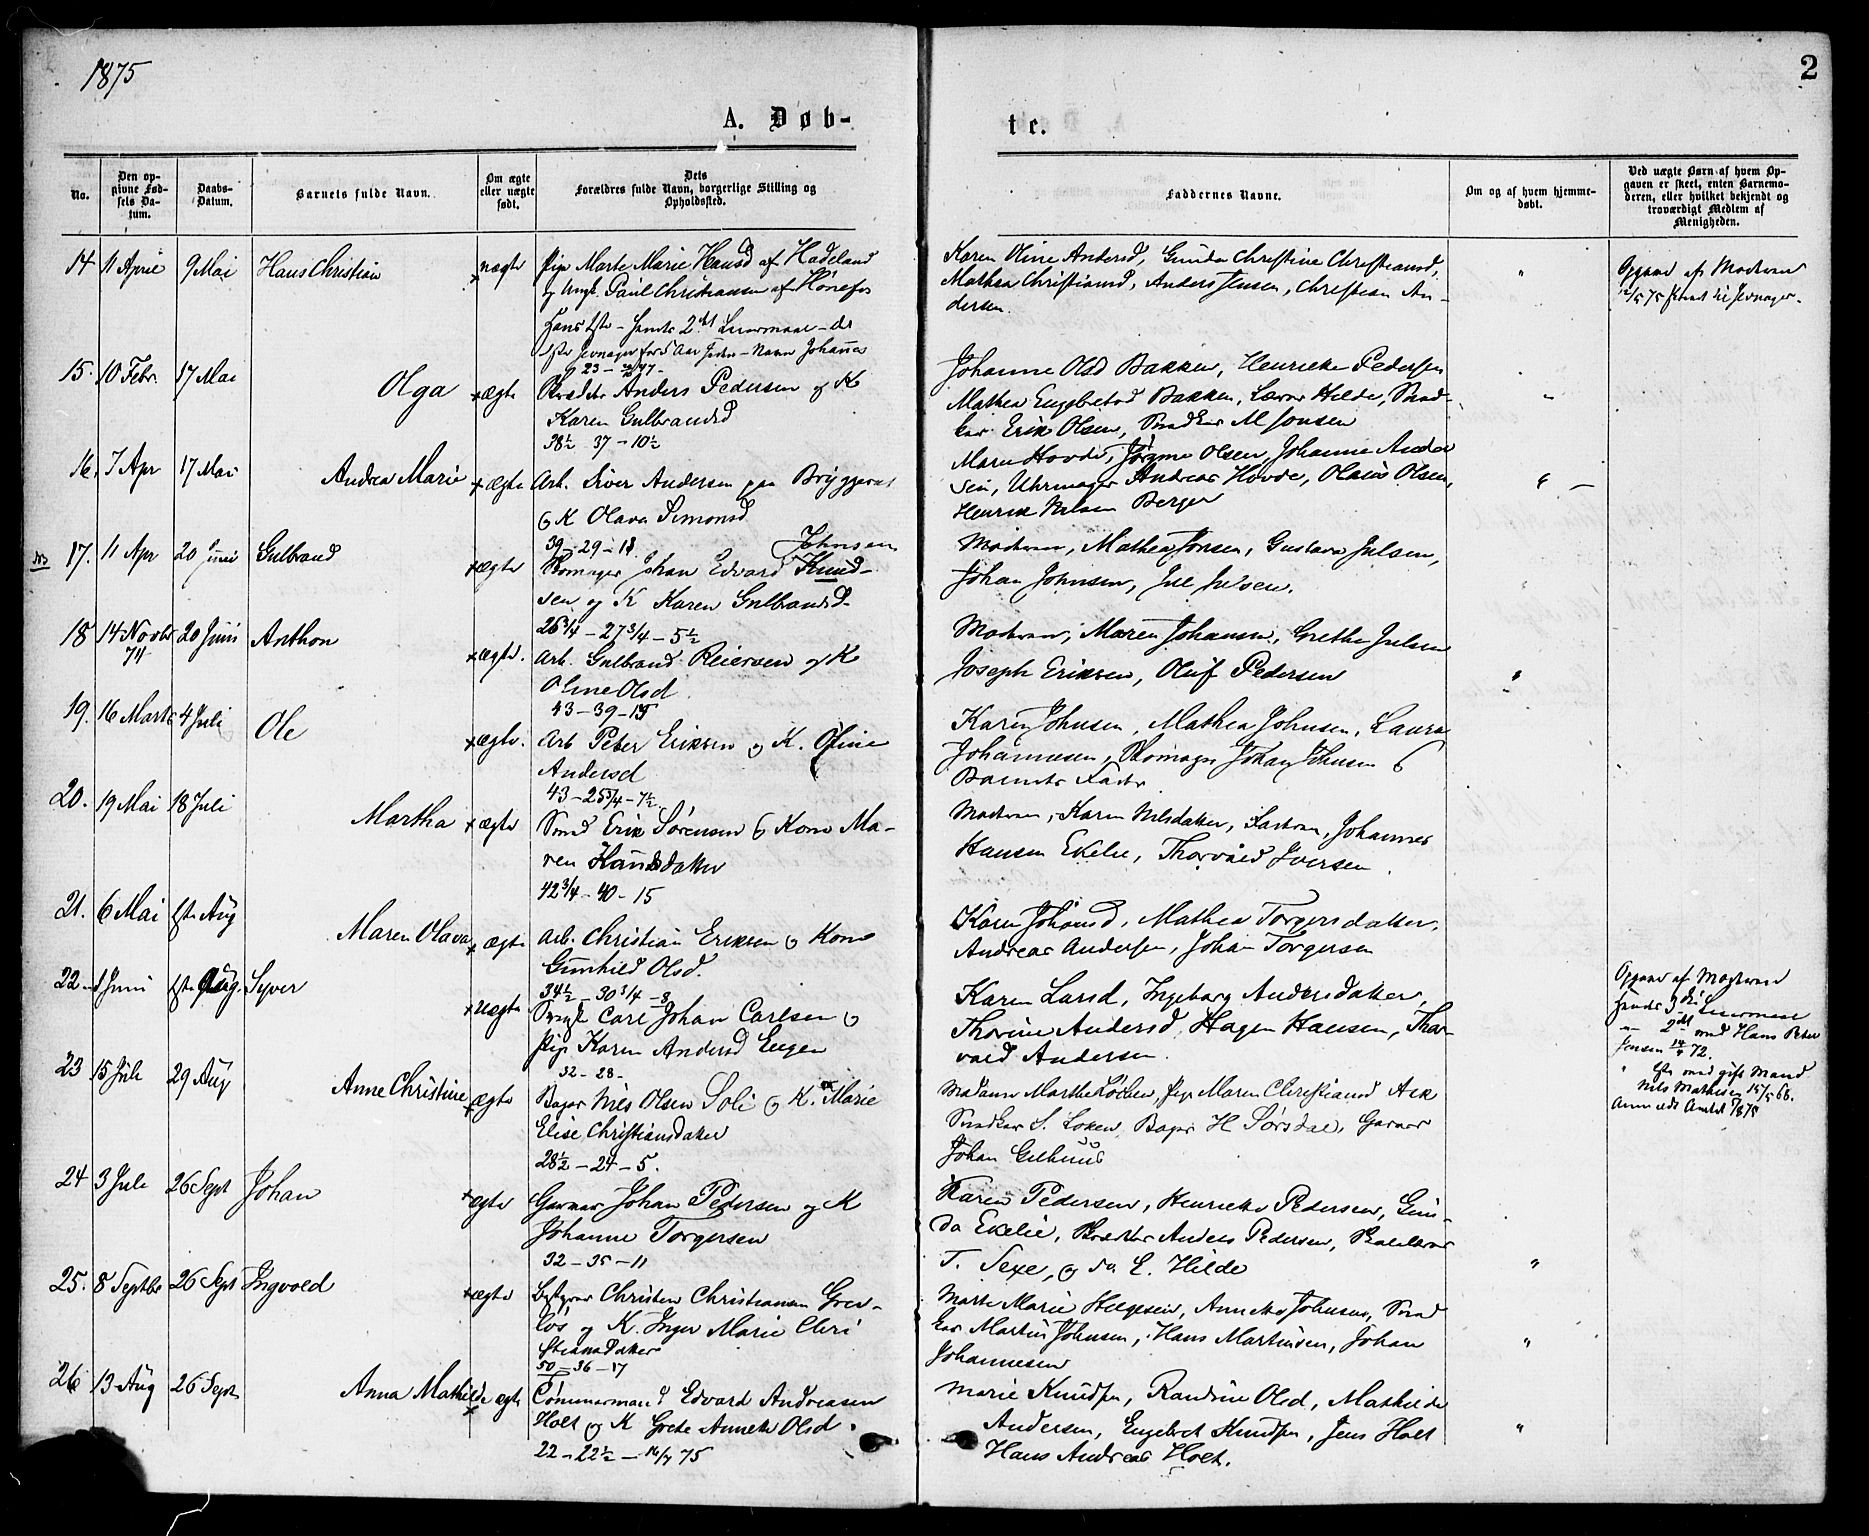 1875
2
A. Døb-
te.
No.
Den op-
givne Fød-
sels Da-
tum.
Daabs-
Datum.
Barnets fulde Navn.
Om ægte
eller uægte
født.
Dets
Forældres fulde Navn, borgerlige Stilling og
Opholdssted.
Faddernes Navne.
Om og af hvem hjemme-
døbt.
Ved uægte Børn af hvem Op-
gaven er skeet, enten Barnemo-
deren, eller hvilket bekjendt og
troværdigt Medlem af
Menigheden.
14 11 April 9 Mai Hans Christian uægte Pige Marte Marie Hansd af Hadeland
og Ungk. Paul Christiansen af Hønefos
Hans 1ste - hendes 2det Leiermaal - de
1ste Jevnager for 5 Aar siden - Navn Johannes
23 -
Karen Oline Andersd, Gunda Christine Christiansd,
Mathea Christiansd, Anders Jensen, Christian An-
dersen.
"
Opgave af Moderen
12/5 75 sendt til Jevnager.
15. 10 Febr. 17 Mai Olga ægte Skrædder Anders Pedersen og K
Karen Gulbrandsd
38½ 37 - 10½
Johanne Olsd Bakken, Henrikke Pedersen
Mathea Engebretsd Bakken, Lærer Hilde, Sned-
ker Erik Olsen, Snedker M Jonsen
"
16. 7 Apr 17 Mai Andrea Marie ægte Arb. Siver Andersen paa Bryggeriet
og K Olava Simonsd
39 - 29 - 18
Maren Hovde, Jørgine Olsen, Johanne Ander
sen, Uhrmager Andreas Hovde, Olaus Olsen,
Henrik Nilsen Berger
"
NB 17. 11 Apr 20 Juni Gulbrand ægte Skomager Johan Edvard Knud-
Johnsen
sen og K Karen Gulbrandsd
26¾ - 27¾ - 5½
Moderen, Mathea Jonsen, Gustava Julsen,
Johan Johnsen, Jul Julsen.
"
18 14 Novbr 20 Juni Anthon ægte. Arb. Gulbrand Reiersen og K
74
Oline Olsd
43 - 39 - 15
Moderen, Maren Johansen, Grethe Julsen
Joseph Eriksen, Oluf Pedersen
"
19. 16 Marts 4 Juli Ole ægte. Arb Peter Eriksen og K. Oline
Andersd
43 - 25¾ - 7½
Karen Johnsen, Mathea Johnsen, Laura
Johannesen, Skomager Johan Johnsen og
Barnets Fader
20. 19 Mai 18 Juli Martha ægte Smed Erik Sørensen og Kone Ma-
ren Hansdatter
42¾ - 40 - 15
Moderen, Karen Nilsdatter, Faderen, Johannes
Hansen Ekelie, Thorvald Iversen.
21. 6 Mai 1ste Aug Maren Olava ægte Arb. Christian Eriksen og Kone
Gunhild Olsd.
34½ - 30¾ - 8
Karen Johansd, Mathea Torgersdatter,
Andreas Andersen, Johan Torgersen
22 Juni 1ste Aug. Syver uægte Ungk Carl Johan Carlsen og
Pige Karen Andersd Engen
32 - 28 -
Karen Larsd, Ingeborg Andersdatter,
Thorine Andersd, Hagen Hansen, Thor
vald Andersen.
Opgave af Moderen
hendes 3die Leiermaal
— 2det med Hans Peter
Jensen 72.
" 1ste med gift Mand
Nils Mathisen 15/5 68.
23 15 Juli 29 Aug Anne Christine ægte Bager Nils Olsen Soli og K. Marie
Elise Christiansdatter
28½ - 24 - 5.
Madam Marthe Løchen, Pige Maren Christiansd Ask
Snedker S. Loken, Bager H Sørsdal, Garver
Johan Gulhuus
24 3 Juli 26 Sept Johan ægte Garver Johan Pedersen og K
Johanne Torgersen
32 - 35 - 11
Karen Pedersen, Henrikke Pedersen, Gun-
da Ekelie, Skrædder Anders Pedersen,
T. Sexe, og do. E. Hilde
"
25. 8 Septbr 26 Sept Ingvald ægte Bestyrer Christen Christiansen Grev-
løs og K. Inger Marie Chri
stiansdatter
50 - 36 - 17
Marte Marie Helgesen, Annette Johnsen, Sned
ker Martin Johnsen, Hans Martinsen, Johan
Johannesen
"
26 13 Aug 26 Sept. Anna Mathilde ægte Tømmermand Edvard Andreasen
Holt og K Grete Annette Olsd.
22 - 22½ - 16/7 75
Marie Knudsen, Randine Olsd, Mathilde
Andersen, Engebret Knudsen, Jens Holt
Hans Andreas Holt.
"